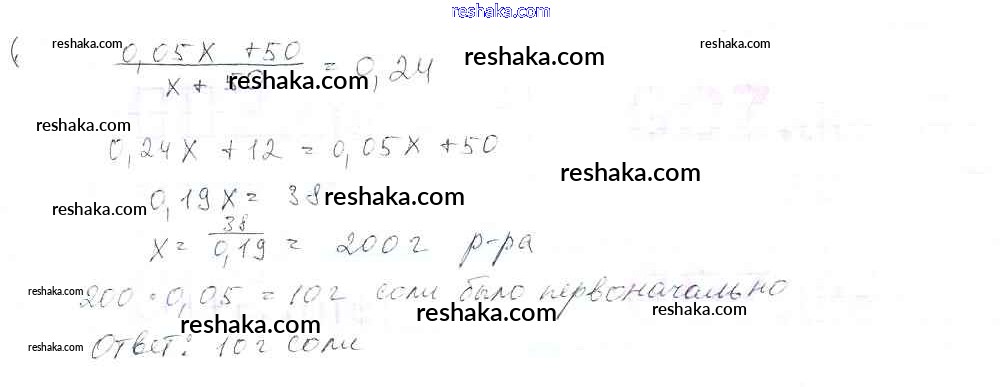 reshaka.com
6
reshaka.com reshaka.com reshaka.com
0,05x + 50 / x + 50 = 0,24
reshaka.com
reshaka.com
0,24x + 12 = 0,05x + 50
reshaka.com
0,19x = 38
reshaka.com reshaka.com
x = 38 / 0,19 = 200 г р-ра
200 · 0,05 = 10 г соли было первоначально
reshaka.com reshaka.com reshaka.com reshaka.com
Ответ: 10 г соли
reshaka.com reshaka.com